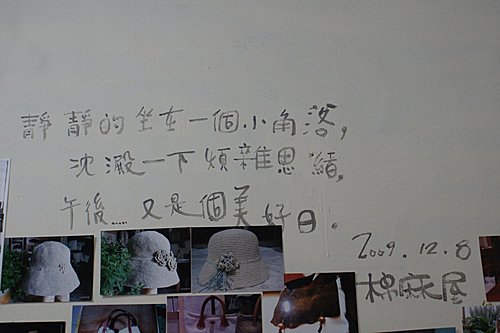 靜靜的坐在一個小角落，
沈澱一下煩雜思緒，
午後……又是個美好日。
2009.12.8
棉麻屋